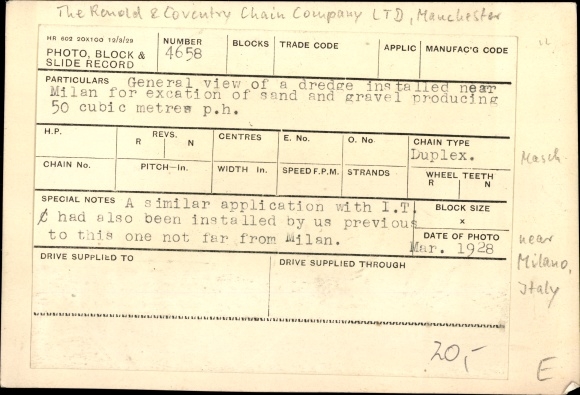 The Renold & Coventry Chain Company LTD, Manchester
HR 602 20X100 12/3/29
PHOTO, BLOCK & SLIDE RECORD
NUMBER 4658
BLOCKS
TRADE CODE
APPLIC
MANUFAC'G CODE
PARTICULARS General view of a dredge installed near
Milan for excation of sand and gravel producing
50 cubic metres p.h.
H.P.
REVS.
R N
CENTRES
E. No.
O. No.
CHAIN TYPE
Duplex.
CHAIN No.
PITCH—In.
WIDTH In.
SPEED F.P.M.
STRANDS
WHEEL TEETH
R N
Masch.
SPECIAL NOTES A similar application with I.T.
had also been installed by us previous
to this one not far from Milan.
BLOCK SIZE
x
DATE OF PHOTO
Mar. 1928
near
Milano,
Italy
DRIVE SUPPLIED TO
DRIVE SUPPLIED THROUGH
20,-
E